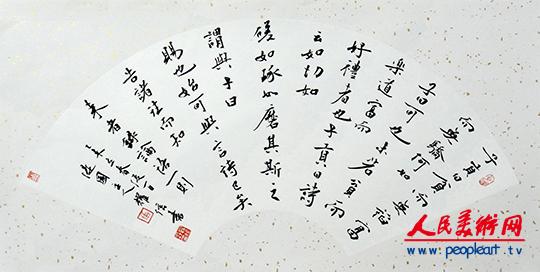 子貢曰貧而無諂富
而無驕何如
子曰可也未若貧而
樂道富而
好禮者也子貢曰詩
云如切如
磋如琢如磨其斯之
謂與子曰
賜也始可與言詩已矣
告諸往而知
來者錄論語一則
人民美术网
www.peopleart.tv